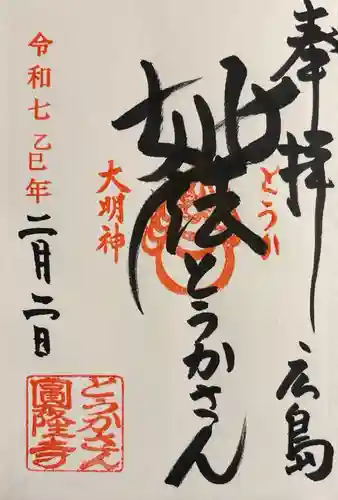 奉拝 広島
とうか
妙法とうかさん
大明神
令和七乙巳年二月二日
とうかさん
圓隆寺